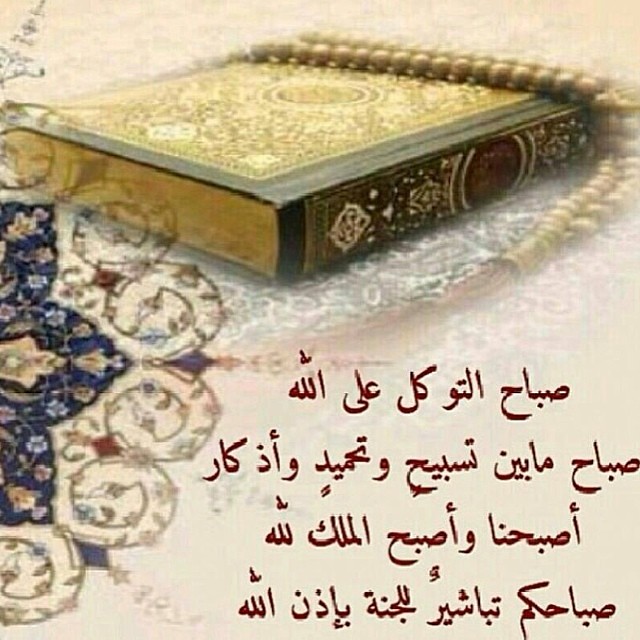 صباح التوكل على الله
صباح مابين تسبيحٍ وتحميدٍ وأذكار
أصبحنا وأصبح الملك لله
صباحكم تباشيرٌ للجنة بإذن الله